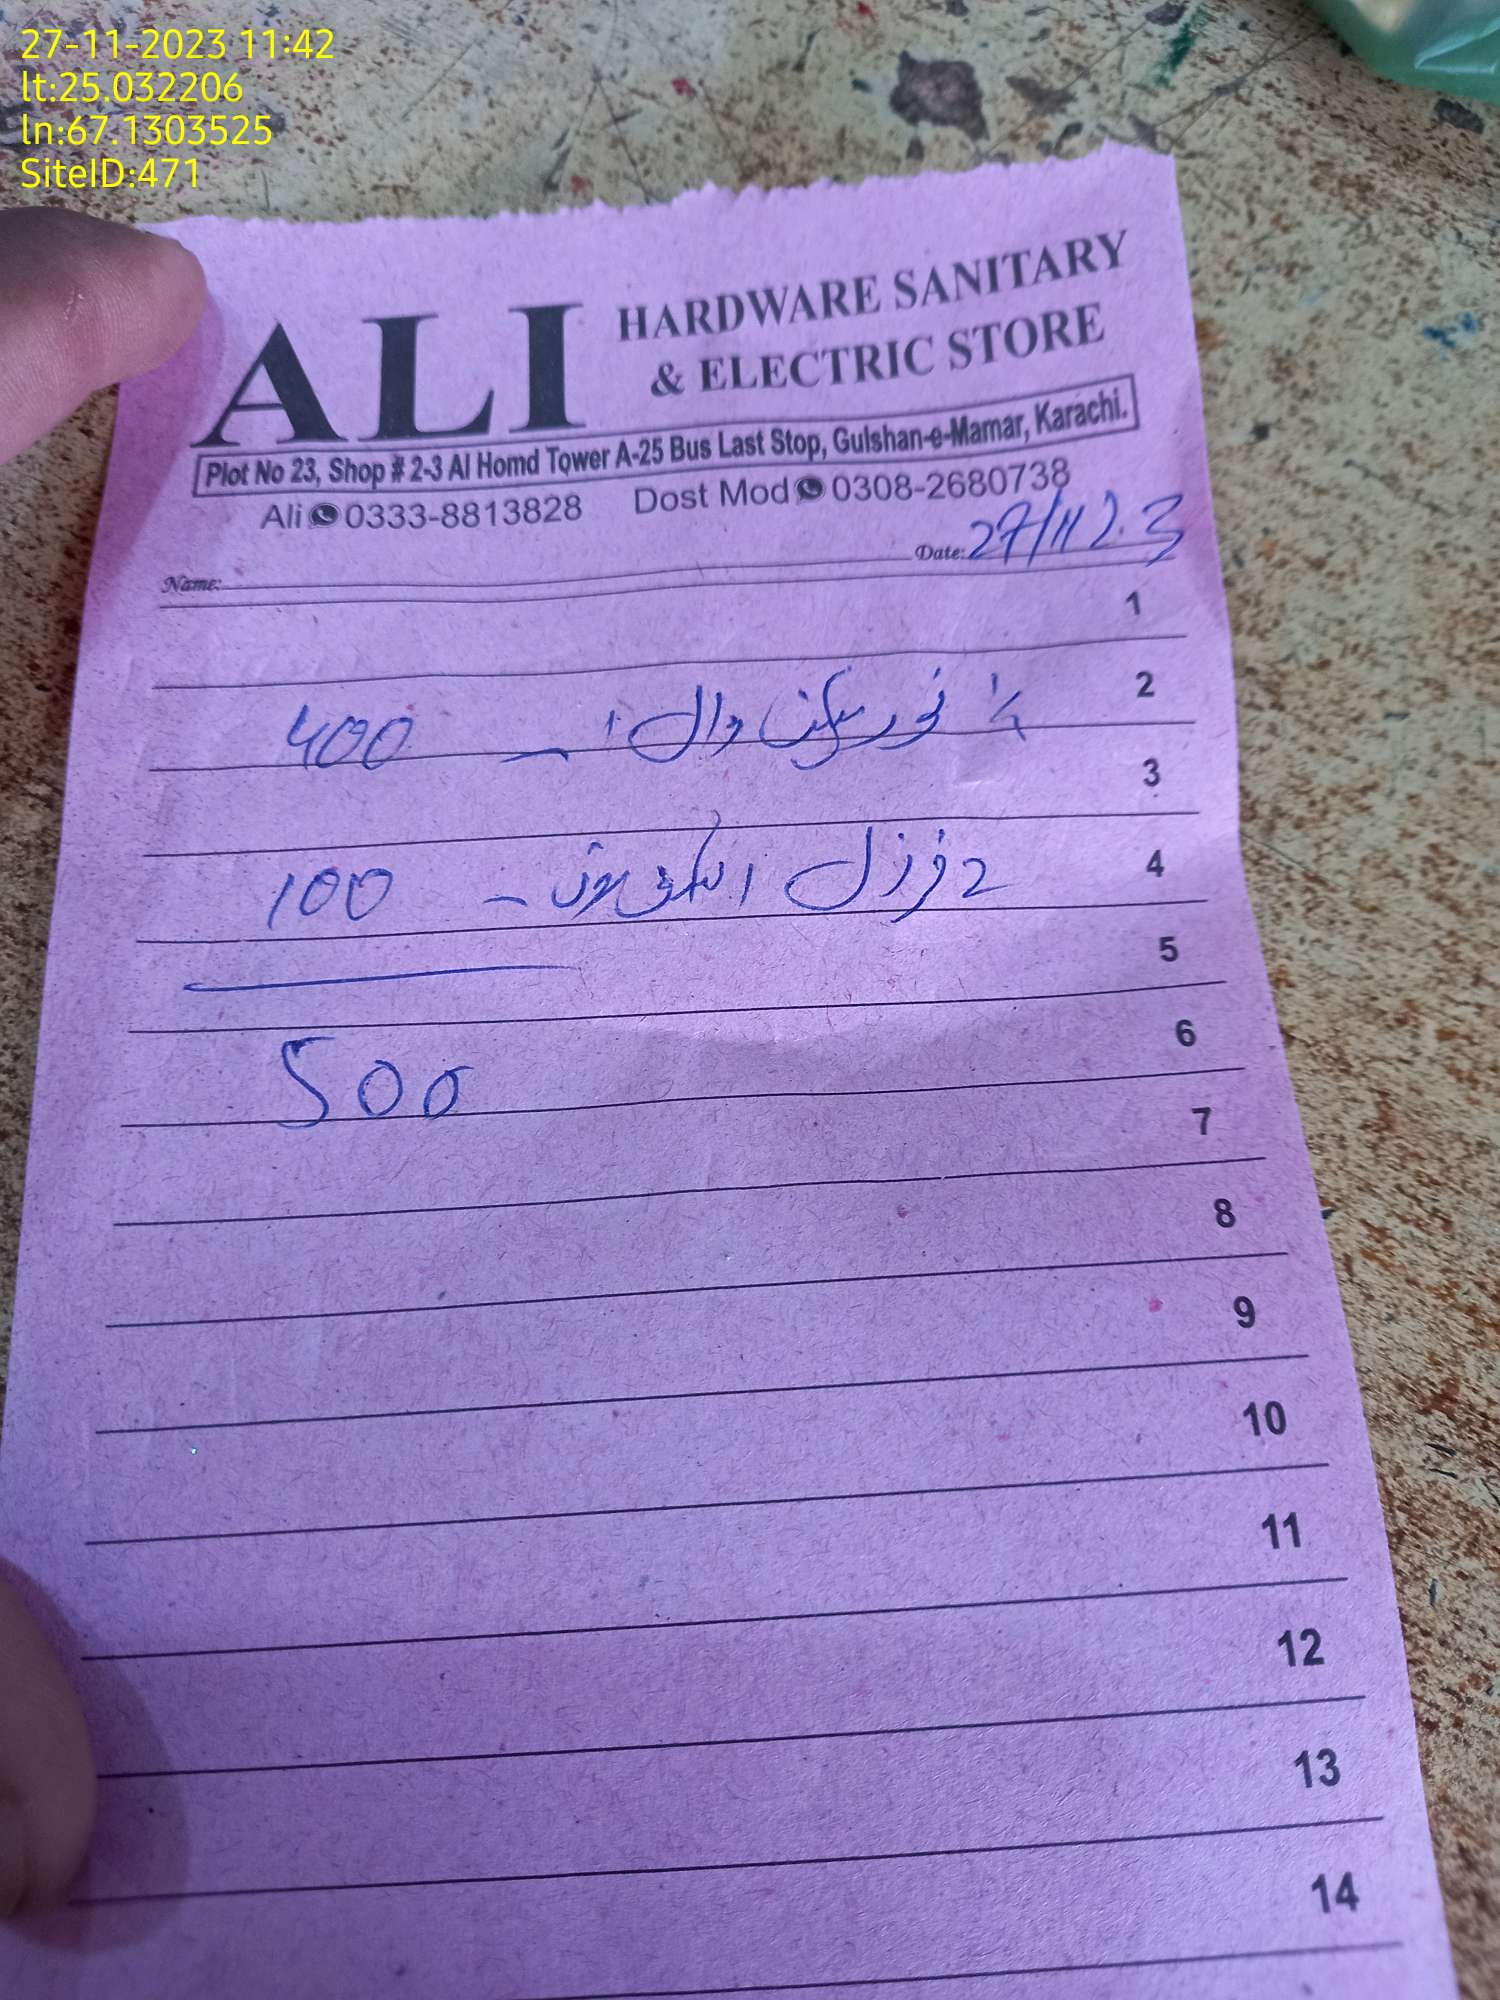 27-11-2023 11:42
lt:25.032206
ln:67.1303525
SiteID:471
ALI HARDWARE SANITARY
& ELECTRIC STORE
Plot No 23, Shop # 2-3 Al Homd Tower A-25 Bus Last Stop, Gulshan-e-Mamar, Karachi.
Ali 0333-8813828 Dost Mod 0308-2680738
Name: Date: 27/11 2.3
1
2
وال 400
3
4
100
5
6
500
7
8
9
10
11
12
13
14